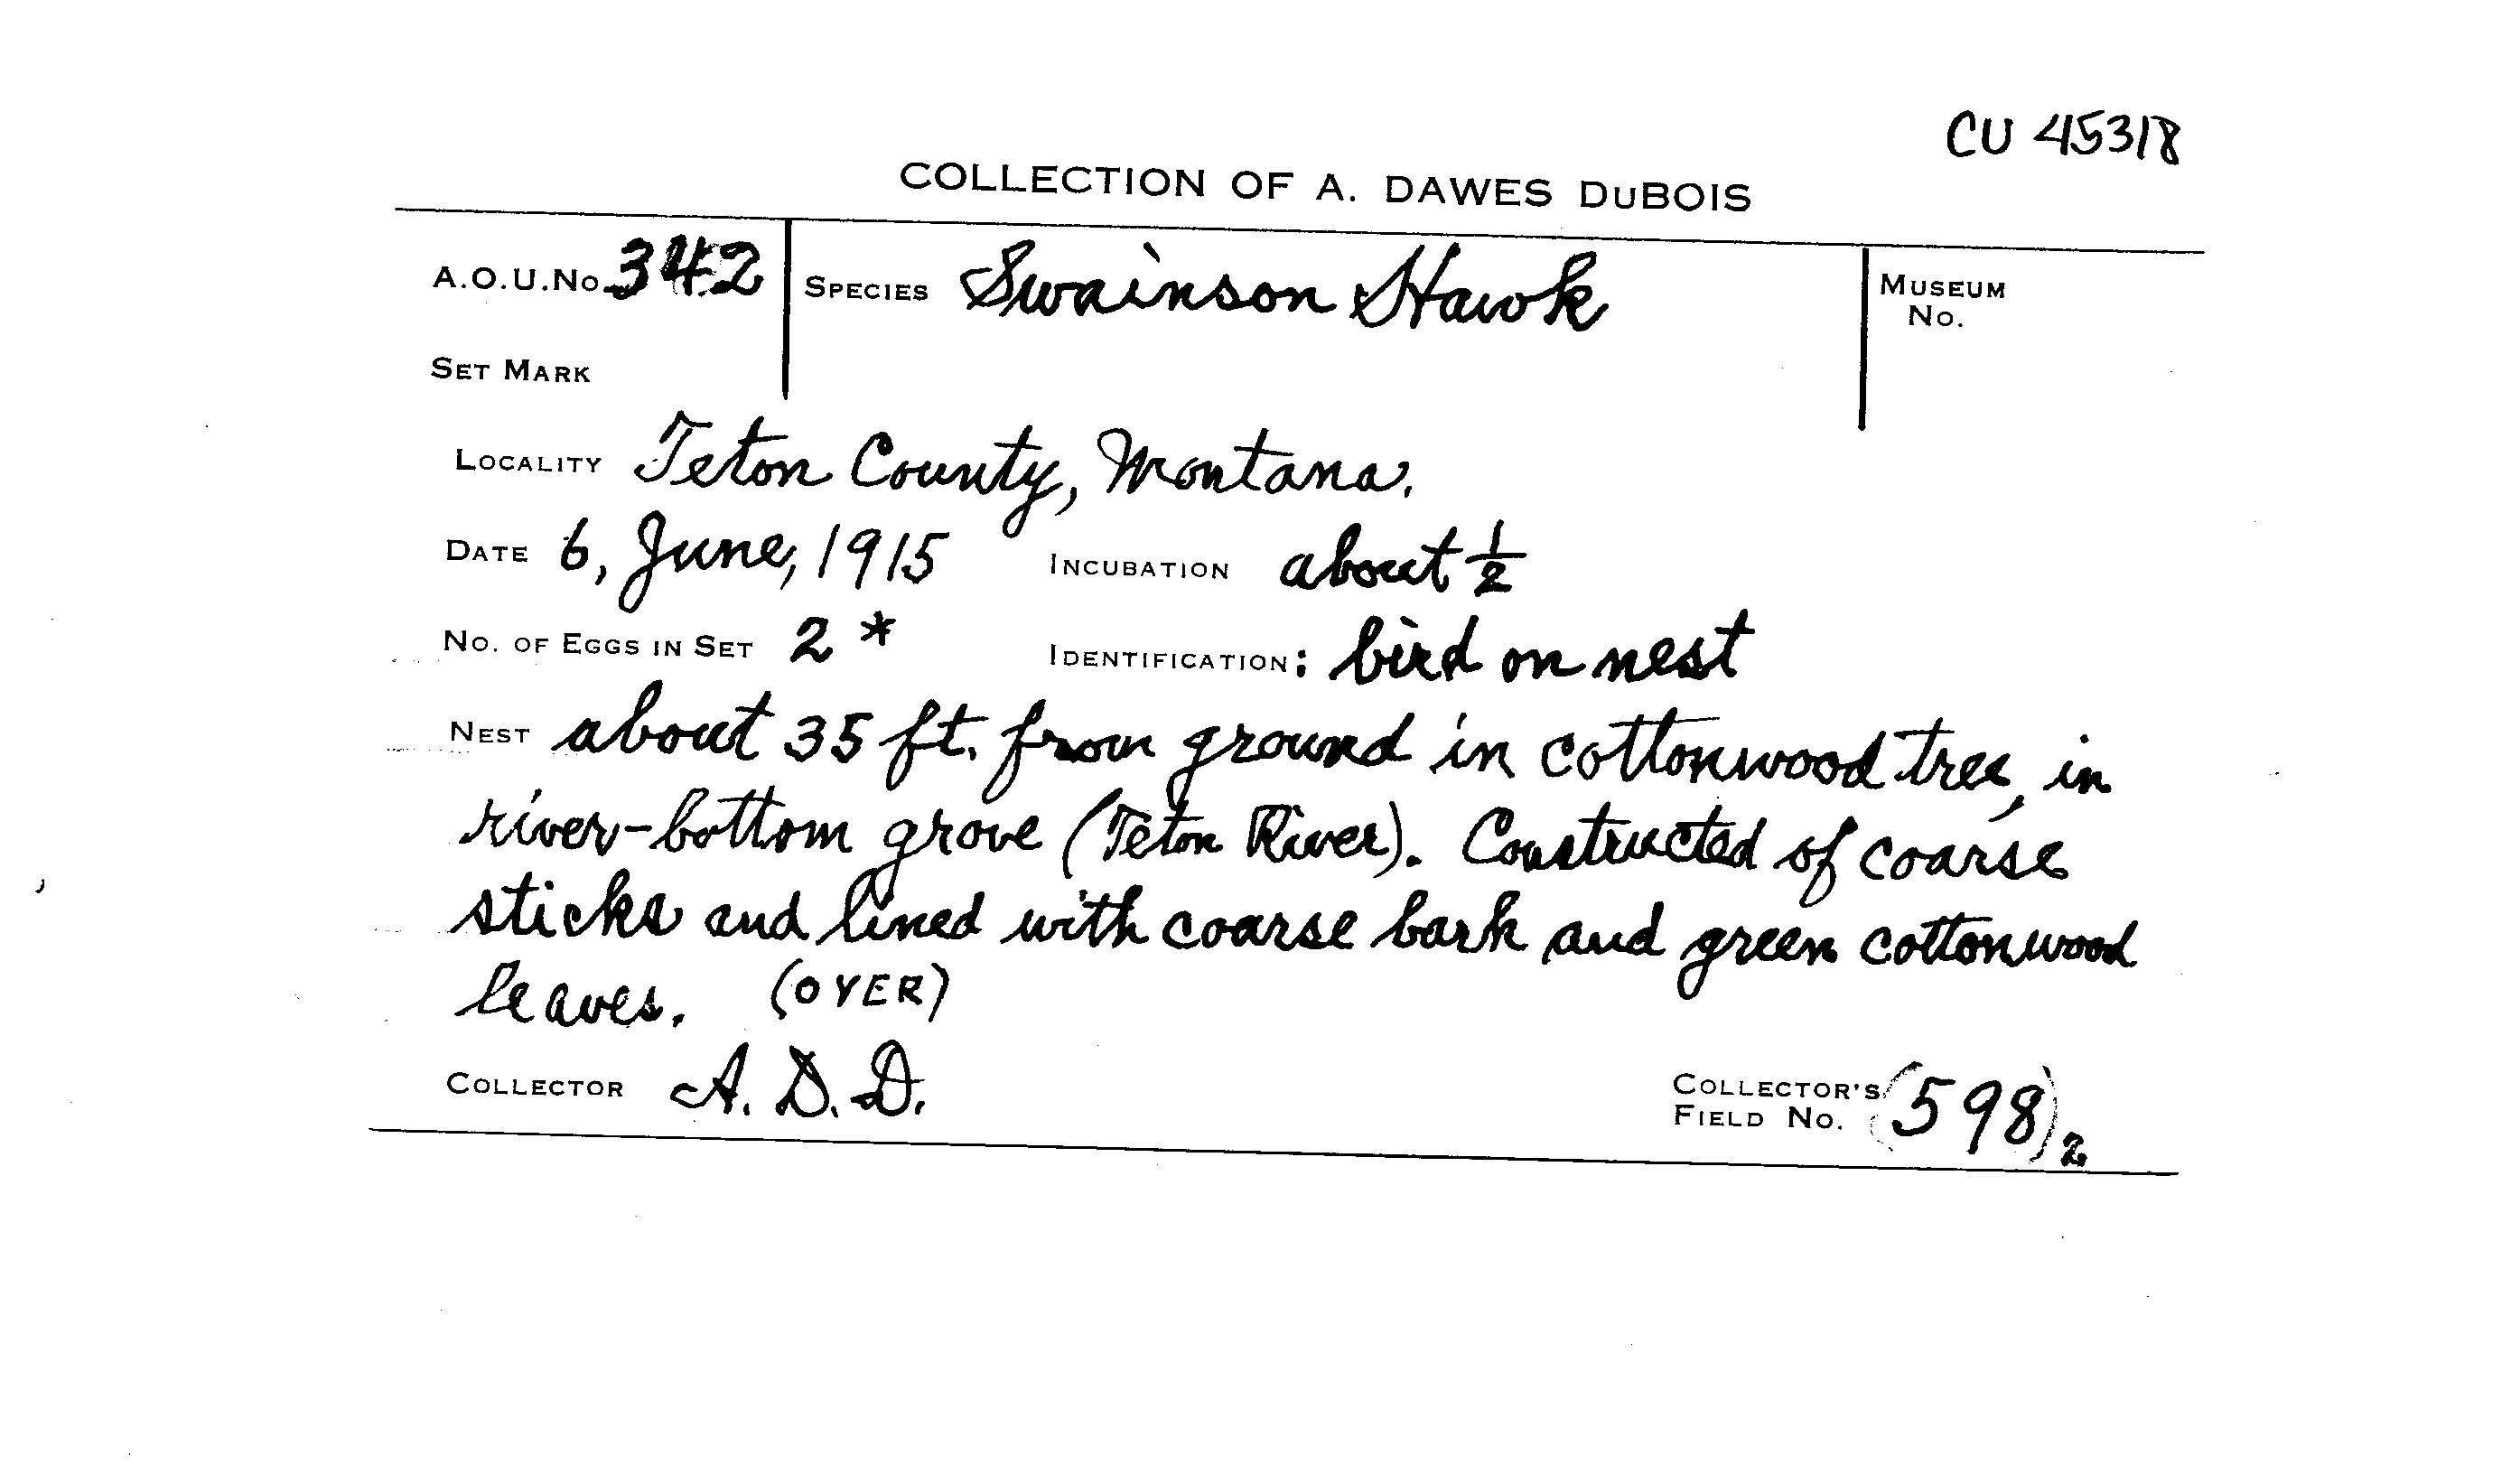 CU 45318
COLLECTION OF A. DAWES DuBOIS
A.O.U.No. 342 SPECIES Swainson Hawk MUSEUM
No.
SET MARK
LOCALITY Teton County, Montana.
DATE 6, June, 1915 INCUBATION about 1/2
No. OF EGGS IN SET 2 * IDENTIFICATION: bird on nest
NEST about 35 ft. from ground in cottonwood tree, in
river-bottom grove (Teton River). Constructed of coarse
sticks and lined with coarse bark and green cottonwood
leaves. (OVER)
COLLECTOR A. D. D. COLLECTOR'S
FIELD No. (598)2